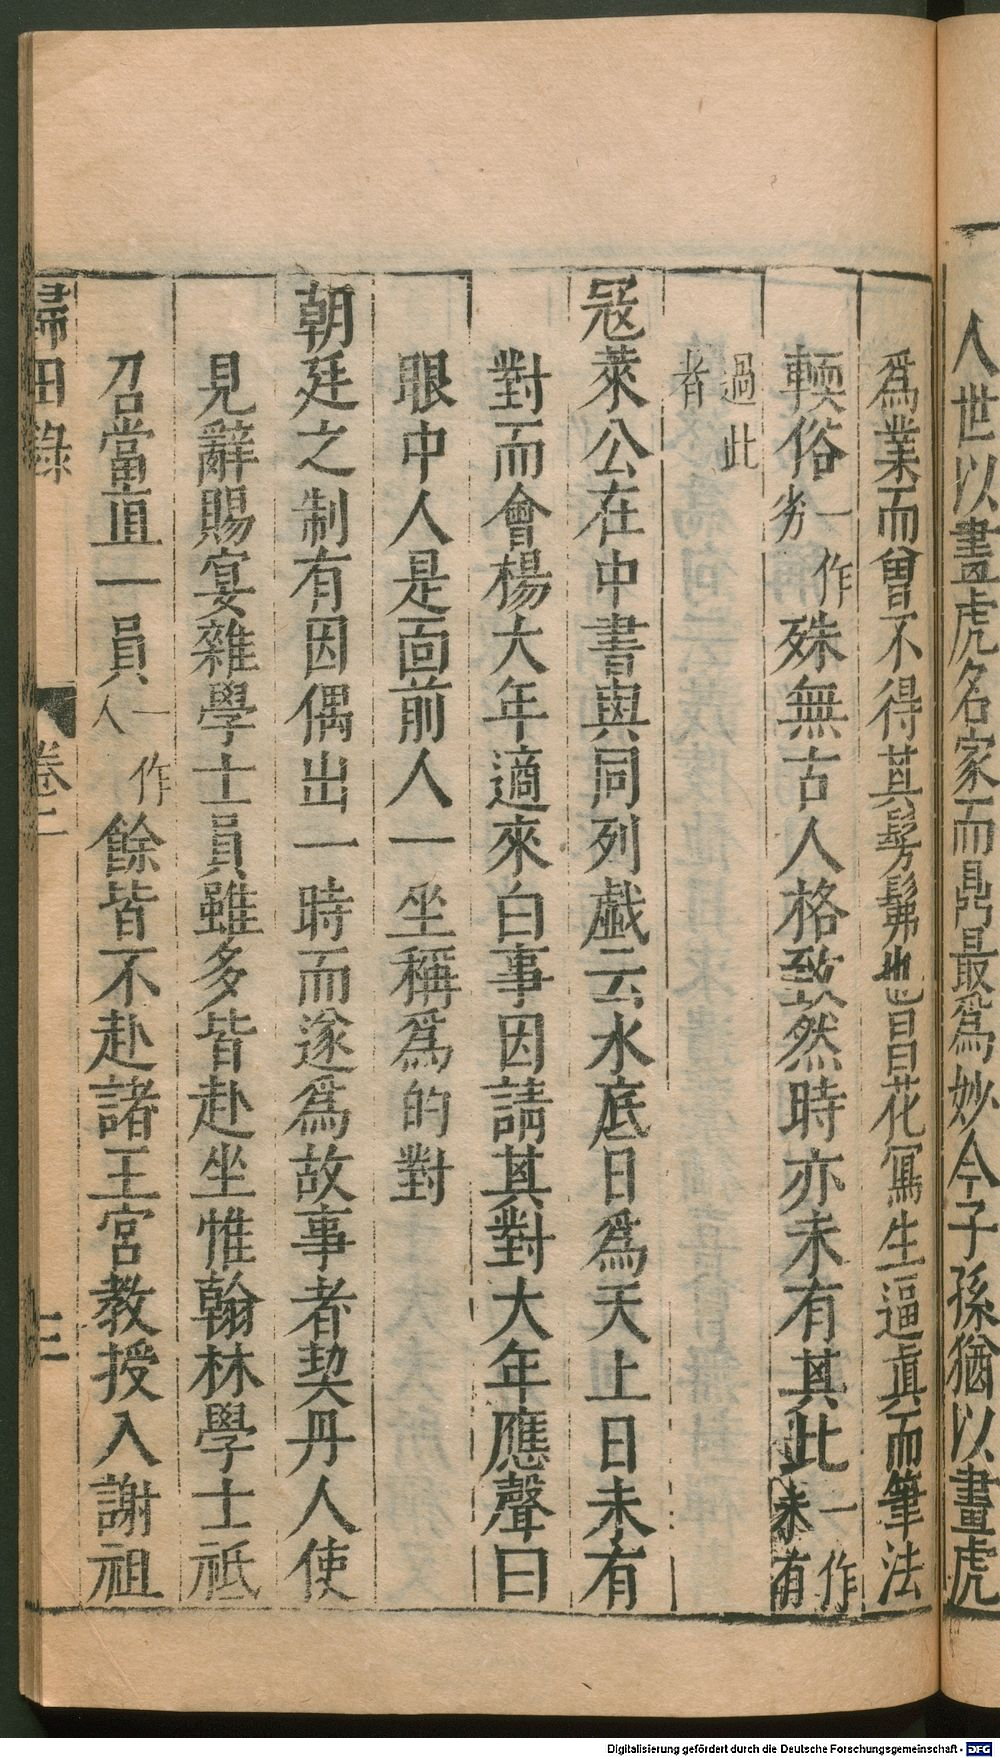 人世以畫虎名家而鼎最爲妙今子孫猶以畫虎
爲業而曾不得其髣髴也昌花寫生逼眞而筆法
輭俗一作劣殊無古人格致然時亦未有其此一作未有
過此者
冦萊公在中書與同列戲云水底日爲天上日未有
對而會楊大年適來白事因請其對大年應聲曰
眼中人是面前人一坐稱爲的對
朝廷之制有因偶出一時而遂爲故事者契丹人使
見辭賜宴雜學士員雖多皆赴坐惟翰林學士祗
召當直一員一作人餘皆不赴諸王宮教授入謝祖
歸田錄 卷二 三
Digitalisierung gefördert durch die Deutsche Forschungsgemeinschaft - DFG